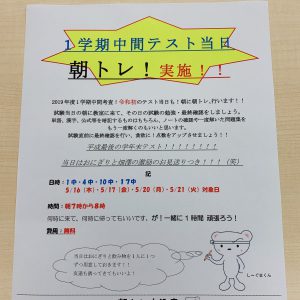 1学期中間テスト当日
朝トレ！実施！！
2019年度1学期中間考査！令和初のテスト当日も！朝に朝トレ、行います！！
試験当日の朝に教室に来て、その日の試験の勉強・最終確認をしましょう。
単語、漢字、公式等を確認するものはもちろん、ノートの確認や一度解いた問題集を
もう一度解くのもいいと思います。
試験直前に最終確認を行い、貪欲に！点数をアップさせましょう！！
平成最後の学年末テスト！！！！！！！！
当日はおにぎりと畑澤の激励のお見送りつき！！！（笑）
記
日時：1中・4中・10中・17中
5／16（木）・5／17（金）・5／20（月）・5／21（火）対象日
時間：朝7時から8時
何時に来て、何時に帰ってもいいです、が！一緒に1時間 頑張ろう！
費用：無料
当日はおにぎりと飲み物を1人に1つ
ずつ用意しておきます！！
友達も誘ってきてもいいよ！
しーぐまくん